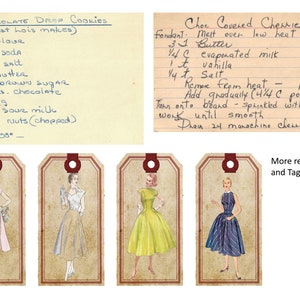 COLATE DROP COOKIES
(that Lois makes)
FLOUR
SODA
SALT
BROWN SUGAR
S. chocolate
SOUR MILK
NUTS (chopped)
Choc Covered Cherries
Fondant: Melt over low heat
3 T Butter
1/4 C evaporated milk
1 t vanilla
1/4 t Salt
Remove from heat -
Add gradually (4 1/4 C po
Turn onto board - sprinkled wit
work until smooth
Drain 24 maraschino cherr
More re
and Tag